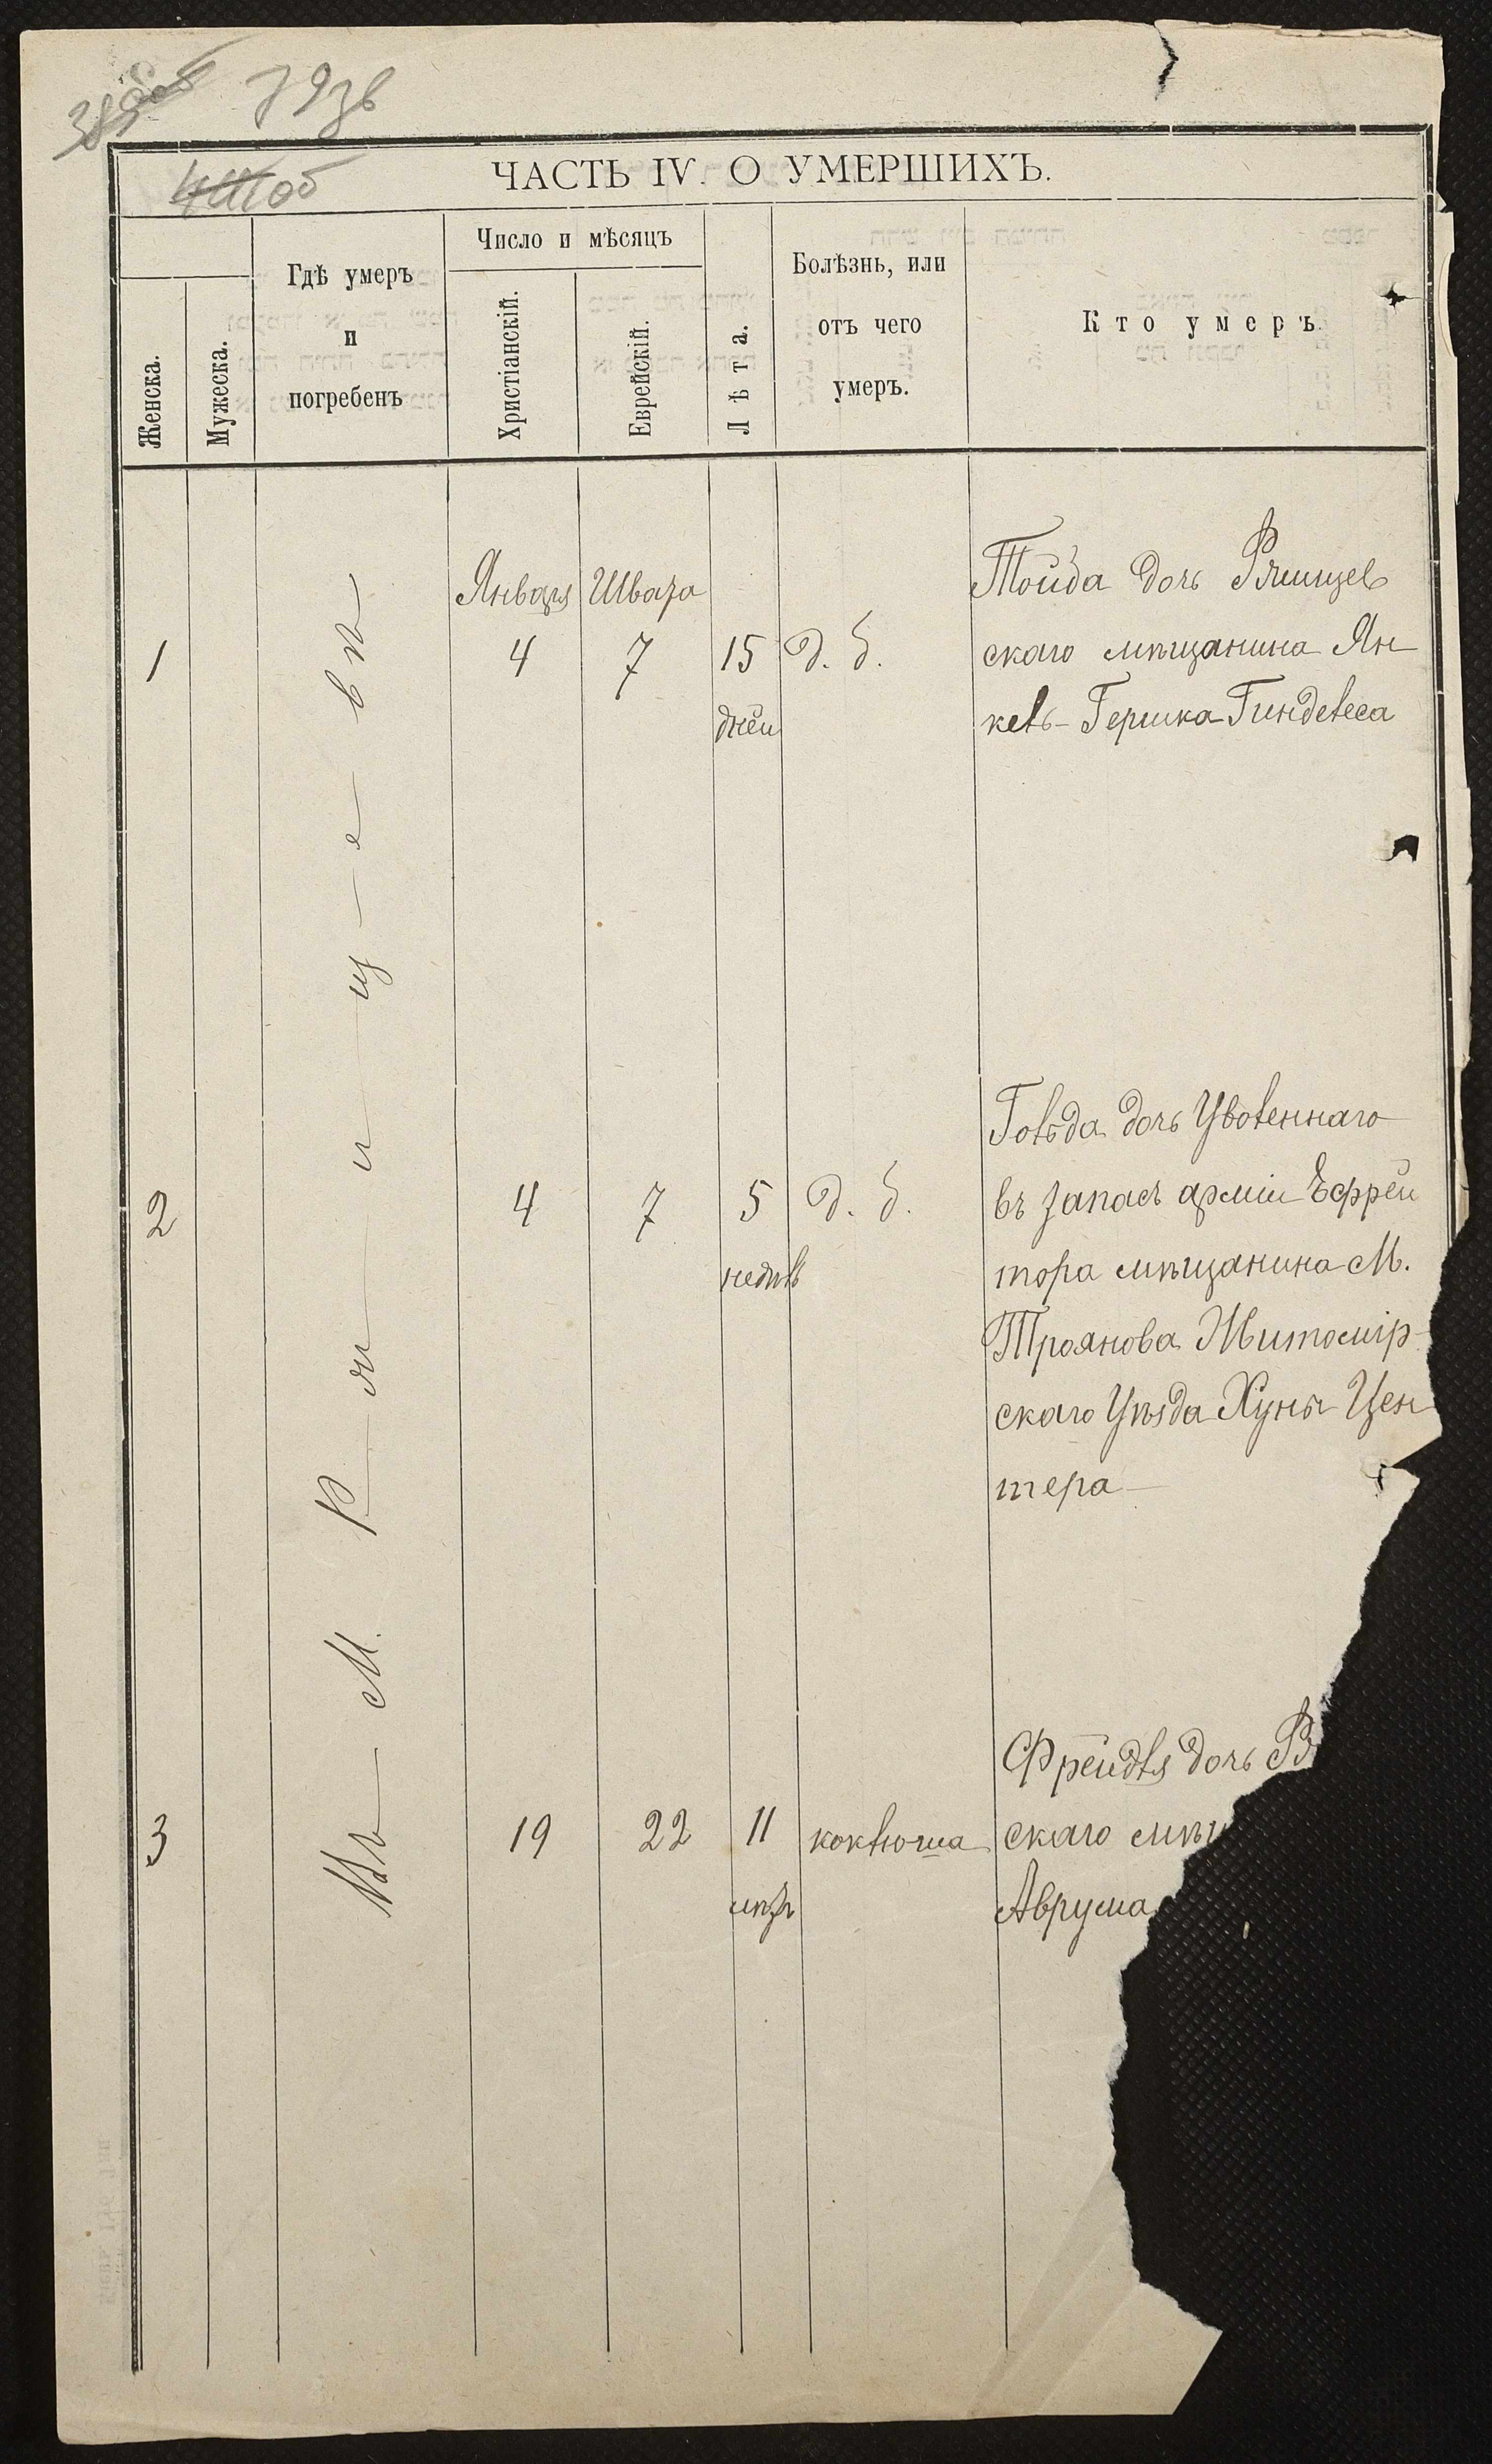 79зв
ЧАСТЬ IV. О УМЕРШИХЪ.
Женска.
Мужеска.
Гдѣ умеръ
и
погребенъ
Число и мѣсяцъ
Христіанскій.
Еврейскій.
Лѣта.
Болѣзнь, или
отъ чего
умеръ.
Кто умеръ.
Въ М. Ряшцевѣ
Января Швата
1 4 7 15 д. б.
дней
Тойба дочь Ряшцев
скаго мѣщанина Ян
кель-Гершка Гинделеса
2 4 7 5 д. б.
недѣль
Гольда дочь Уволеннаго
въ запасъ арміи Ефрей
тора мѣщанина М.
Троянова Житомір-
скаго Уѣзда Хуны Цен
тера
3 19 22 11 коклюша
Фрейдля дочь
скаго мѣщ
Аврума